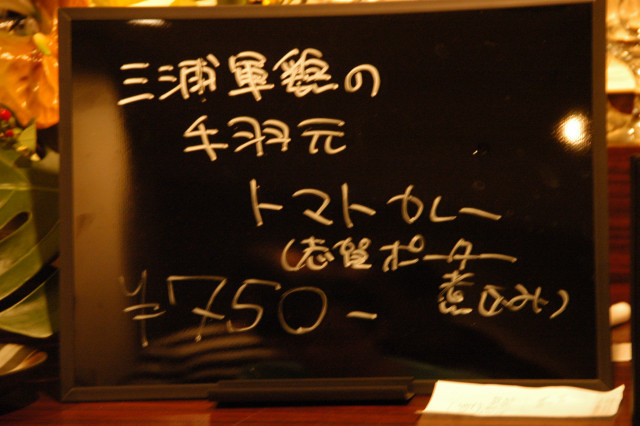 三浦軍鶏の
手羽元
トマトカレー
(志賀ポーター
煮込み)
¥750-